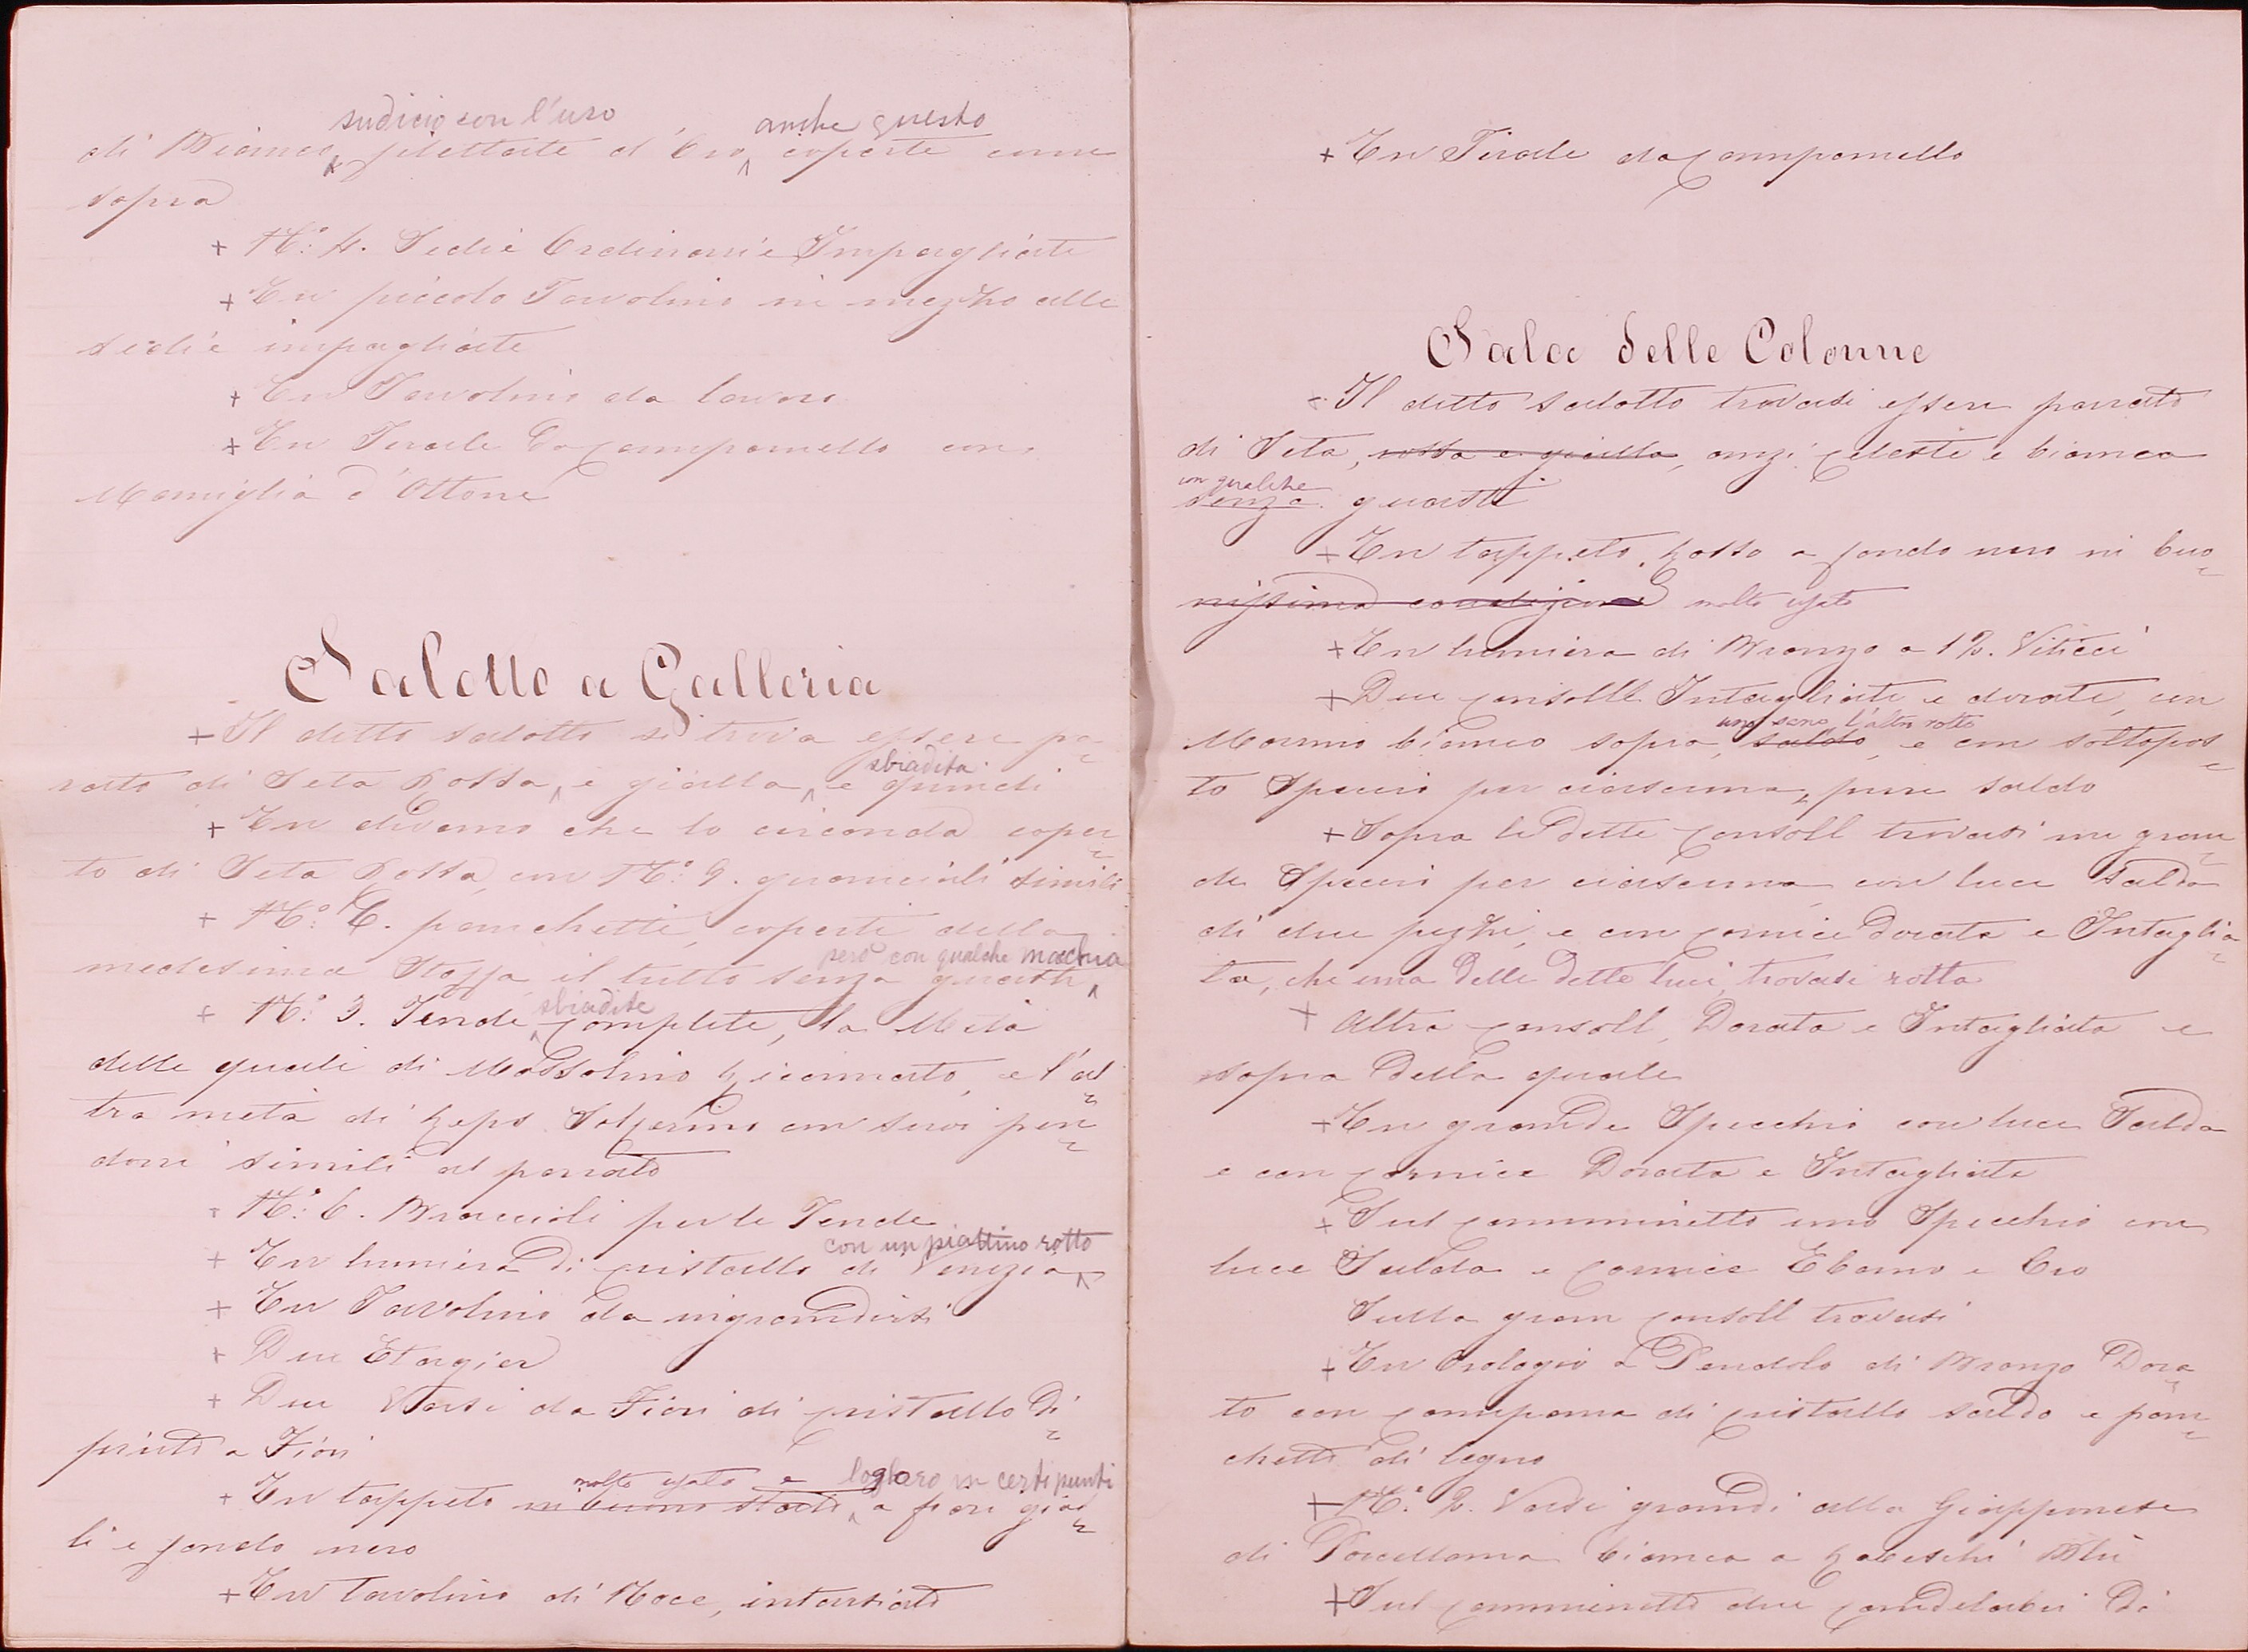 sudicio con l'uso anche questo
di Bianco, filettate d'Oro, coperte come
sopra
+ N.° 4. Sedie Ordinarie Impagliate
+ Un piccolo Tavolino in mezzo alle
sedie impagliate
+ Un Tavolino da lavoro
+ Un Tirale da campanello con
Maniglia d'Ottone
Salotto a Galleria
+ Il detto salotto si trova essere pa=
sbiadita
rato di Seta Rossa, e gialla, e quindi
+ Un divano che lo circonda coper=
to di Seta Rossa, con N.° 9. guanciali simili
+ N.° 6. panchetti, coperti della
però con qualche macchia
medesima Stoffa, il tutto senza guasti
+ N.° 3. Tende sbiadite complete, la Metà
delle quali di Mossolino Ricamato, e l'al=
tra metà di Reps Solferino con suoi pen=
doni simili al parato
+ N.° 6. Braccioli per le Tende
con un piattino rotto
+ Un lumiera di cristallo di Venezia
+ Un Tavolino da ingrandirsi
+ Due Etagier
+ Due Vasi da Fiori di cristallo Di=
pinto a Fiori
molto usato e logoro in certi punti
+ Un tappeto in buono stato, a fiori gial=
li e fondo nero
+ Un tavolino di Noce, intarsiato
+ Un Tirale da Campanello
Sala delle Colonne
+ Il detto salotto trovasi essere parato
di Seta, rossa e gialla, anzi celeste e bianca
con qualche
senza guasti
+ Un tappeto, Rosso a fondo nero in buo=
nissima condizione molto usato
+ Un lumiera di Bronzo a 12. Viticci
+ Due consolle Intagliate e dorate, con
uno sano, l'altro rotto
Marmo bianco sopra, saldo, e con sottopos=
to Specchio per ciascuna, pure saldo
+ Sopra le dette consoll trovasi un gran=
de Specchio per ciascuna con luce Salda
di due pezzi, e con cornice Dorata e Intaglia=
ta, che una delle dette luci, trovasi rotta
+ Altra consoll, Dorata e Intagliata e
sopra della quale
+ Un grande Specchio con luce Salda
e con cornice Dorata e Intagliata
+ Sul camminetto uno Specchio con
luce Salda e Cornice Ebano e Oro
Sulla gran consoll trovasi
+ Un Orologio a Pendolo di Bronzo Dora=
to con campana di cristallo saldo e pan=
chetto di legno
+ N.° 2. Vasi grandi alla Giapponese
di Porcellana bianca a Rabeschi Blù
+ Sul camminetto due candelabri Di